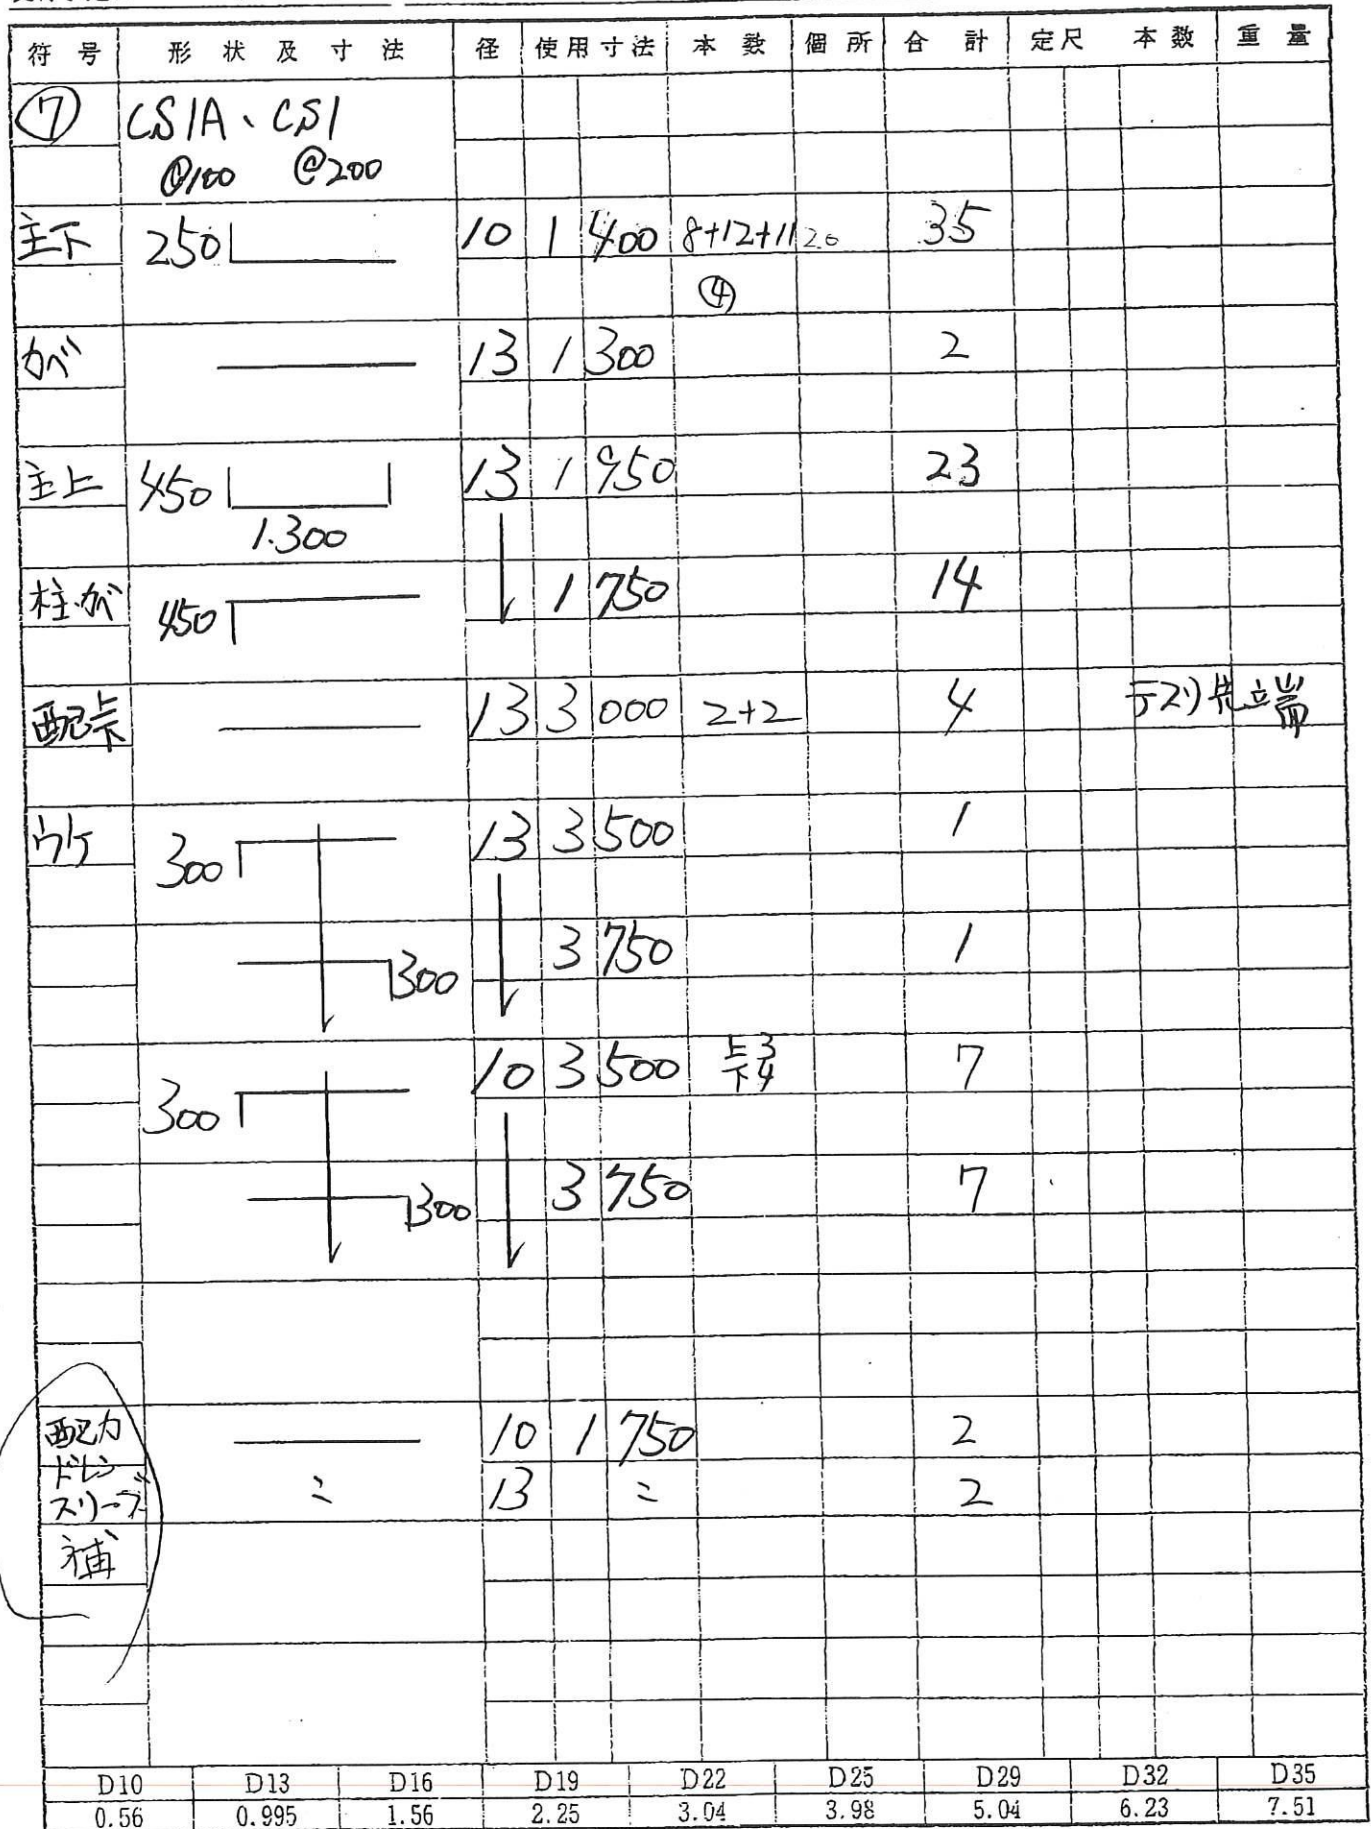 符号 形状及寸法 径 使用寸法 本数 個所 合計 定尺 本数 重量
⑦ CS1A、CS1
@100 @200
主下 250 10 1 400 8+12+11 20 35
④
かべ 13 1 300 2
主上 450 13 1 950 23
1.300
柱.かべ 450 1 750 14
配上下 13 3 000 2+2 4 テスリ先端
ウケ 300 13 3 500 1
300 3 750 1
300 10 3 500 上3 下4 7
300 3 750 7
配力 10 1 750 2
ドレン
スリーブ 〃 13 〃 2
補
D10 D13 D16 D19 D22 D25 D29 D32 D35
0.56 0.995 1.56 2.25 3.04 3.98 5.04 6.23 7.51